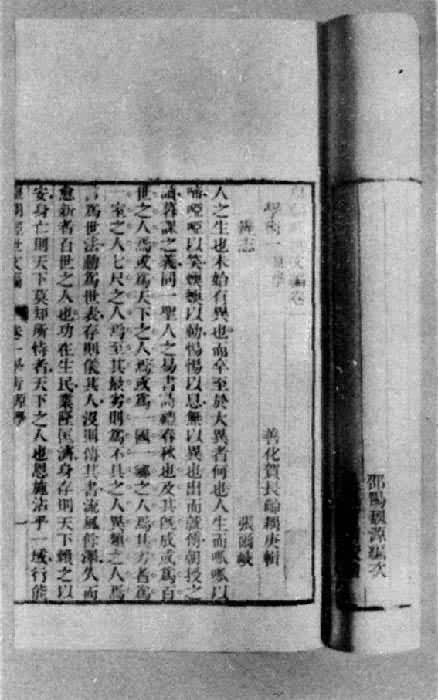 邵陽魏源編次
文編卷
學術一原學 善化賀長齡耦庚輯
辨志 張爾岐
人之生也未始有異也而卒至於大異者何也人生而呱呱以
啼啞啞以笑蠕蠕以動惕惕以息無以異也出而就傅朝授之
讀暮課之義同一聖人之易書詩禮春秋也及其旣成或爲百
世之人焉或爲天下之人焉或爲一國一鄉之人焉其劣者爲
一室之人七尺之人焉至其最劣則爲不具之人異類之人焉
言爲世法動爲世表存則儀其人沒則傳其書流風餘澤久而
愈新者百世之人也功在生民業隆匡濟身存則天下賴之以
安身亡則天下莫知所恃者天下之人也恩施沾乎一域行能
皇朝經世文編 卷一學術原學 一